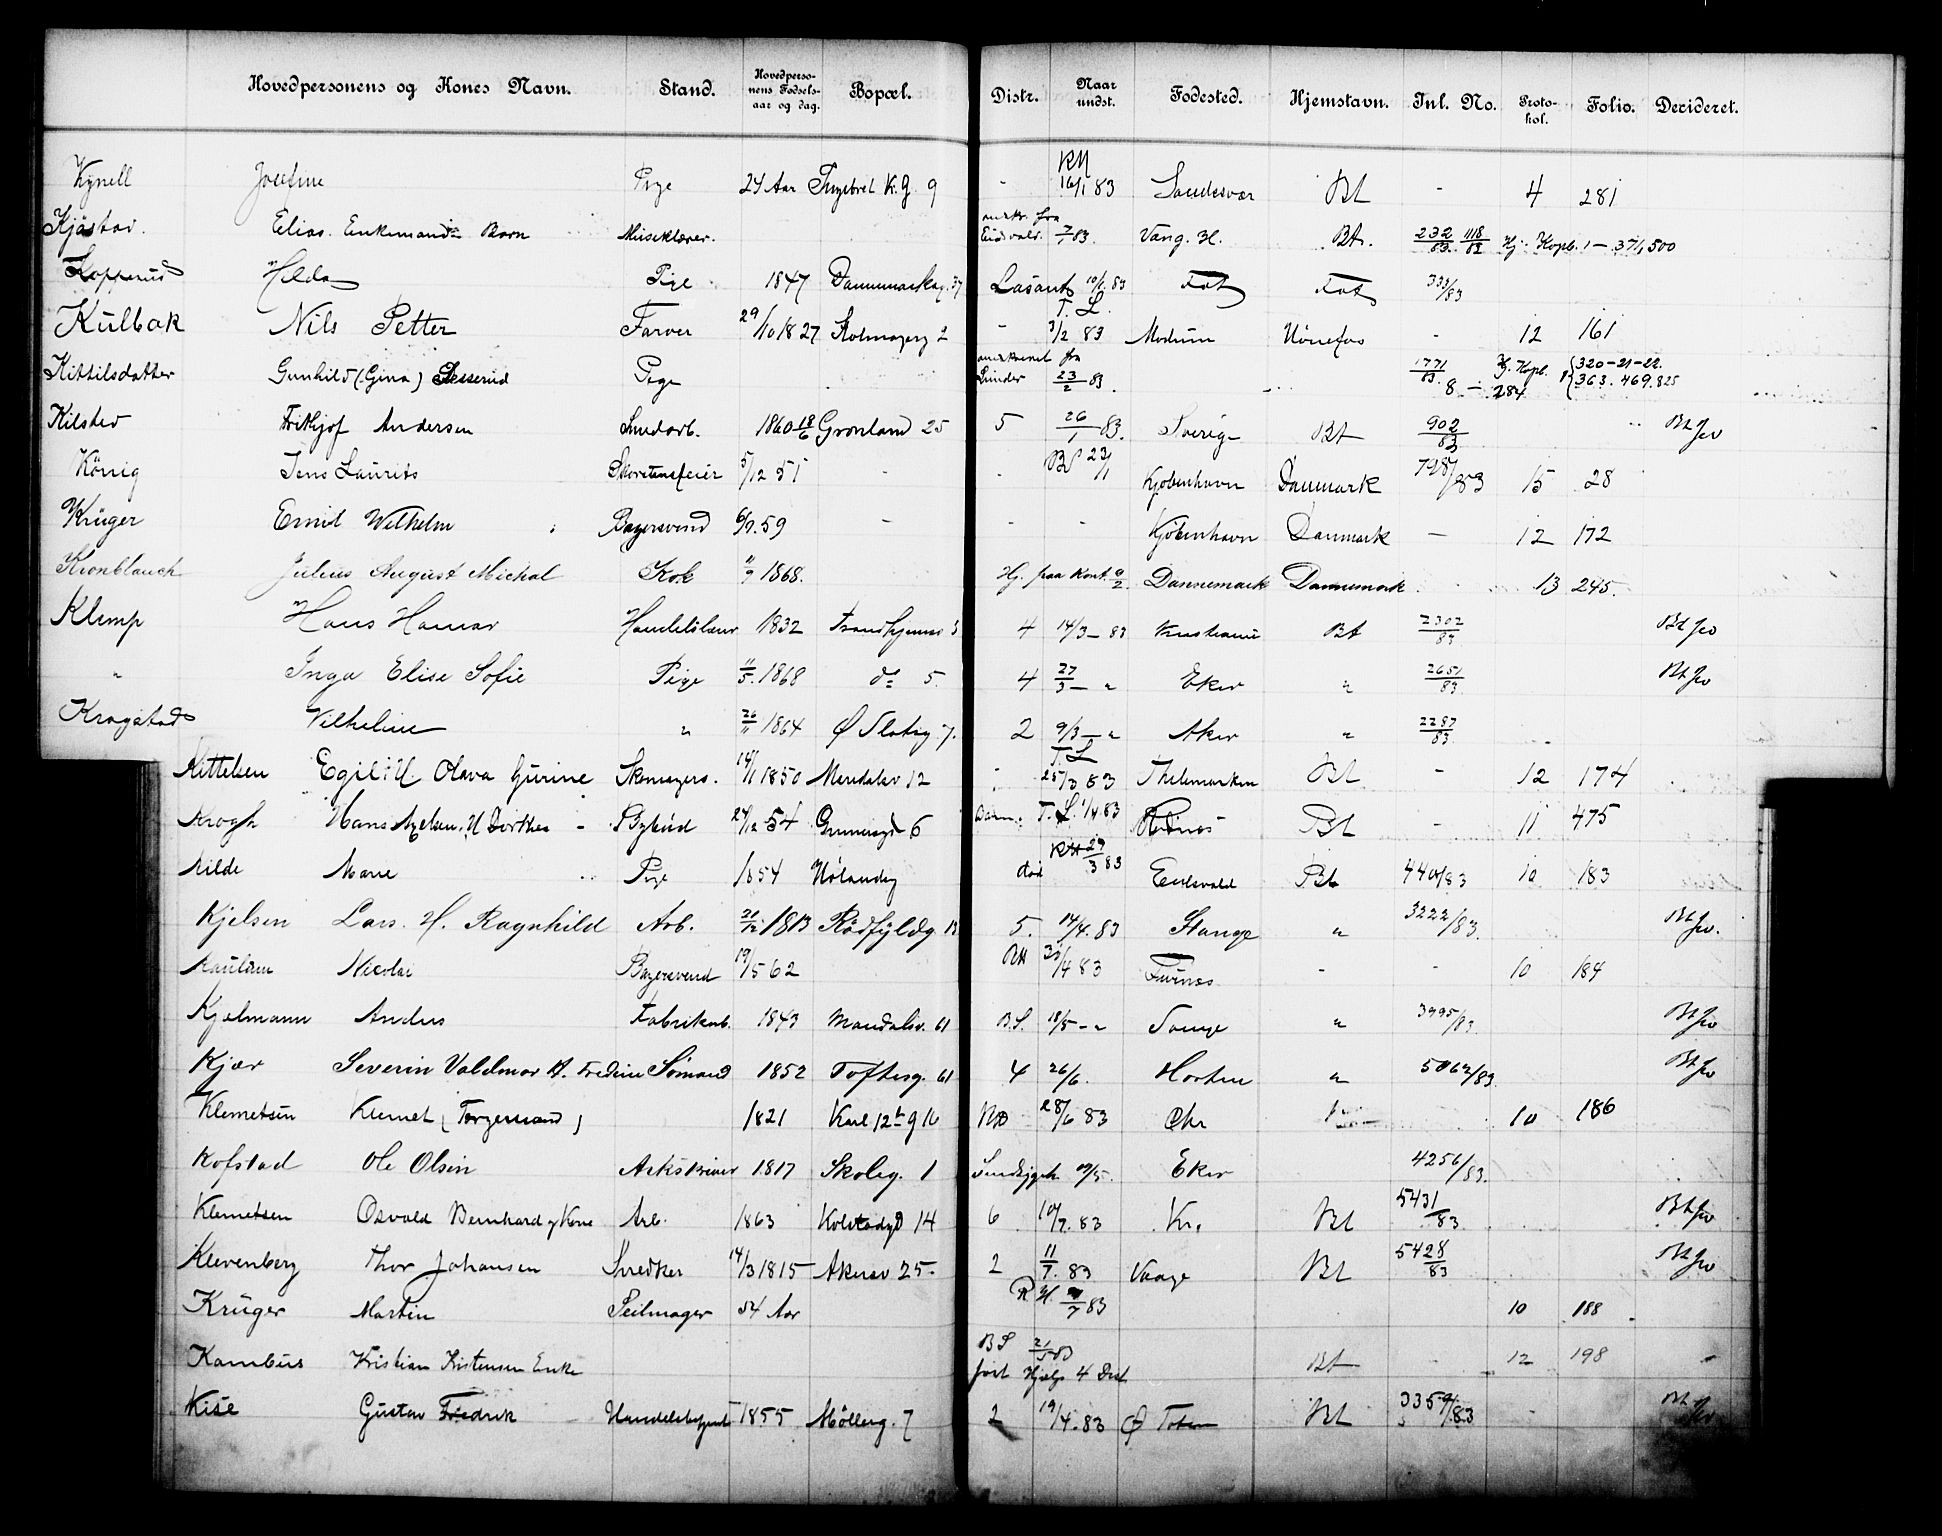 Hovedpersonens og Kones Navn. Stand. Hovedpersonens Fødselsaar og dag. Bopæl. Distr. Naar undst. Fødested. Hjemstavn. Jnl. No. Protokol. Folio. Decideret.
Kynell Josefine Pige 24 Aar K. G. 9 - RH 16/1 83 Sandesvær Bt - 4 281
Kjøstav. Elias. Enkemand Barn Musiklærer. fra Eidsvold. 7/1 83. Vang. H. Bt. 232/83. 1118/83 Hj. Kopb. 1 - 371,500
Kopperud Hilda Pige 1847 Danmarksg. 37 10/1 83 333/83
Kulbak Nils Petter Farver 29/10 1827 Kolmagerg 2 - T. L. 3/2 83 Modum Hönefos - 12 161
Kittilsdatter Gunhild (Gina) Pige fra Lunder 23/2 83. 1771/83. Hj. Kopb. 320-21-22. 363. 469. 825 8 - 284
Kilsted Frithjof Andersen Smedarb. 1860 18/6 Grönland 25 5 26/1 83. Sverige Bt 902/83 Bt Jo
König Jens Laurits Skorstensfeier 5/12 51 - - 23/1 Kjöbenhavn Danmark 798/83 15 28
Krüger Emil Wilhelm Bagersvend 6/9. 59 - - - Kjöbenhavn Danmark - 12 172
Kronblauch Julius August Michal Kok 11/9 1868. Hj. fraa Kont. 9/2. Dannemark Dannemark 13 245.
Klemp Hans Hamar 1832 4 14/3 - 83 Kristiania Bt 2302/83 Bt Jo
" Inga Elise Sofie Pige 11/5. 1868 do 5. 4 27/3 - " Eker " 2651/83 Bt Jo
Krogstad Vilheline " 26/11 1864 Ø Slotsg 7. 2 9/3 - " Aker " 2287/83
Kittelsen Egil: H Olava Gurine Skomagers. 14/11 1850 Maridalsv 12 T. L 25/3 83 Thelemarken Bt - 12 174
Krogh Hans Axelsen, H Dorthea - Bybud 24/12 54 Grunersgd 6 T. L. 1/4 83 Bt - 11 475
Kilde Marie Pige 1854 död RH 29/3 83 Eidsvold Bt 440/83 10 183
Kjelsen Lars. H. Ragnhild Arb. 21/12 1813 Rödfyldg 13 5. 14/4. 83 Stange " 3222/83. Bt Jo.
Kaulum Nicolai Bagersvend 19/5 62 RH 30/4 83 Furnes - - 10 184
Kjelmann Anders Fabrikarb. 1843 Maridalsv. 61 B. S. 18/5 - " " 3995/83 Bt Jo
Kjær Severin Valdmar H. Fredrine Sömand 1852 Toftesg. 61 4 26/6. Horten " 5062/83 Bt Jo
Klemetsen Klemet (Torgersrand) 1821 Karl 12te g 16 28/6 83 Chr 10 186
Kofstad Ole Olsen Aktskriver 1817 Skoleg. 1 Eker 4256/83.
Klemetsen Osvald Bernhard og Kone Arb. 1863 Kolstadgd 14 6 10/7. 83 Kr. Bt 5431/83 Bt Jo
Klevenberg Thor Johansen Skrædker 14/3 1815 Akersv 25 2 11/7. 83 Vaage Bt 5428/83 Bt Jo
Krüger Martin Seilmager 54 Aar R H. 83 10 188
Kambus Kristian Kristensen Enke B S 21/5 83 fast Hjælp 4 Dist Bt 12 198
Kise Gustav Fredrik Handelsbetjent 1855 Mölleg. 7 2 19/4. 83 Ø Toten Bt 3359/83 - Bt Jo